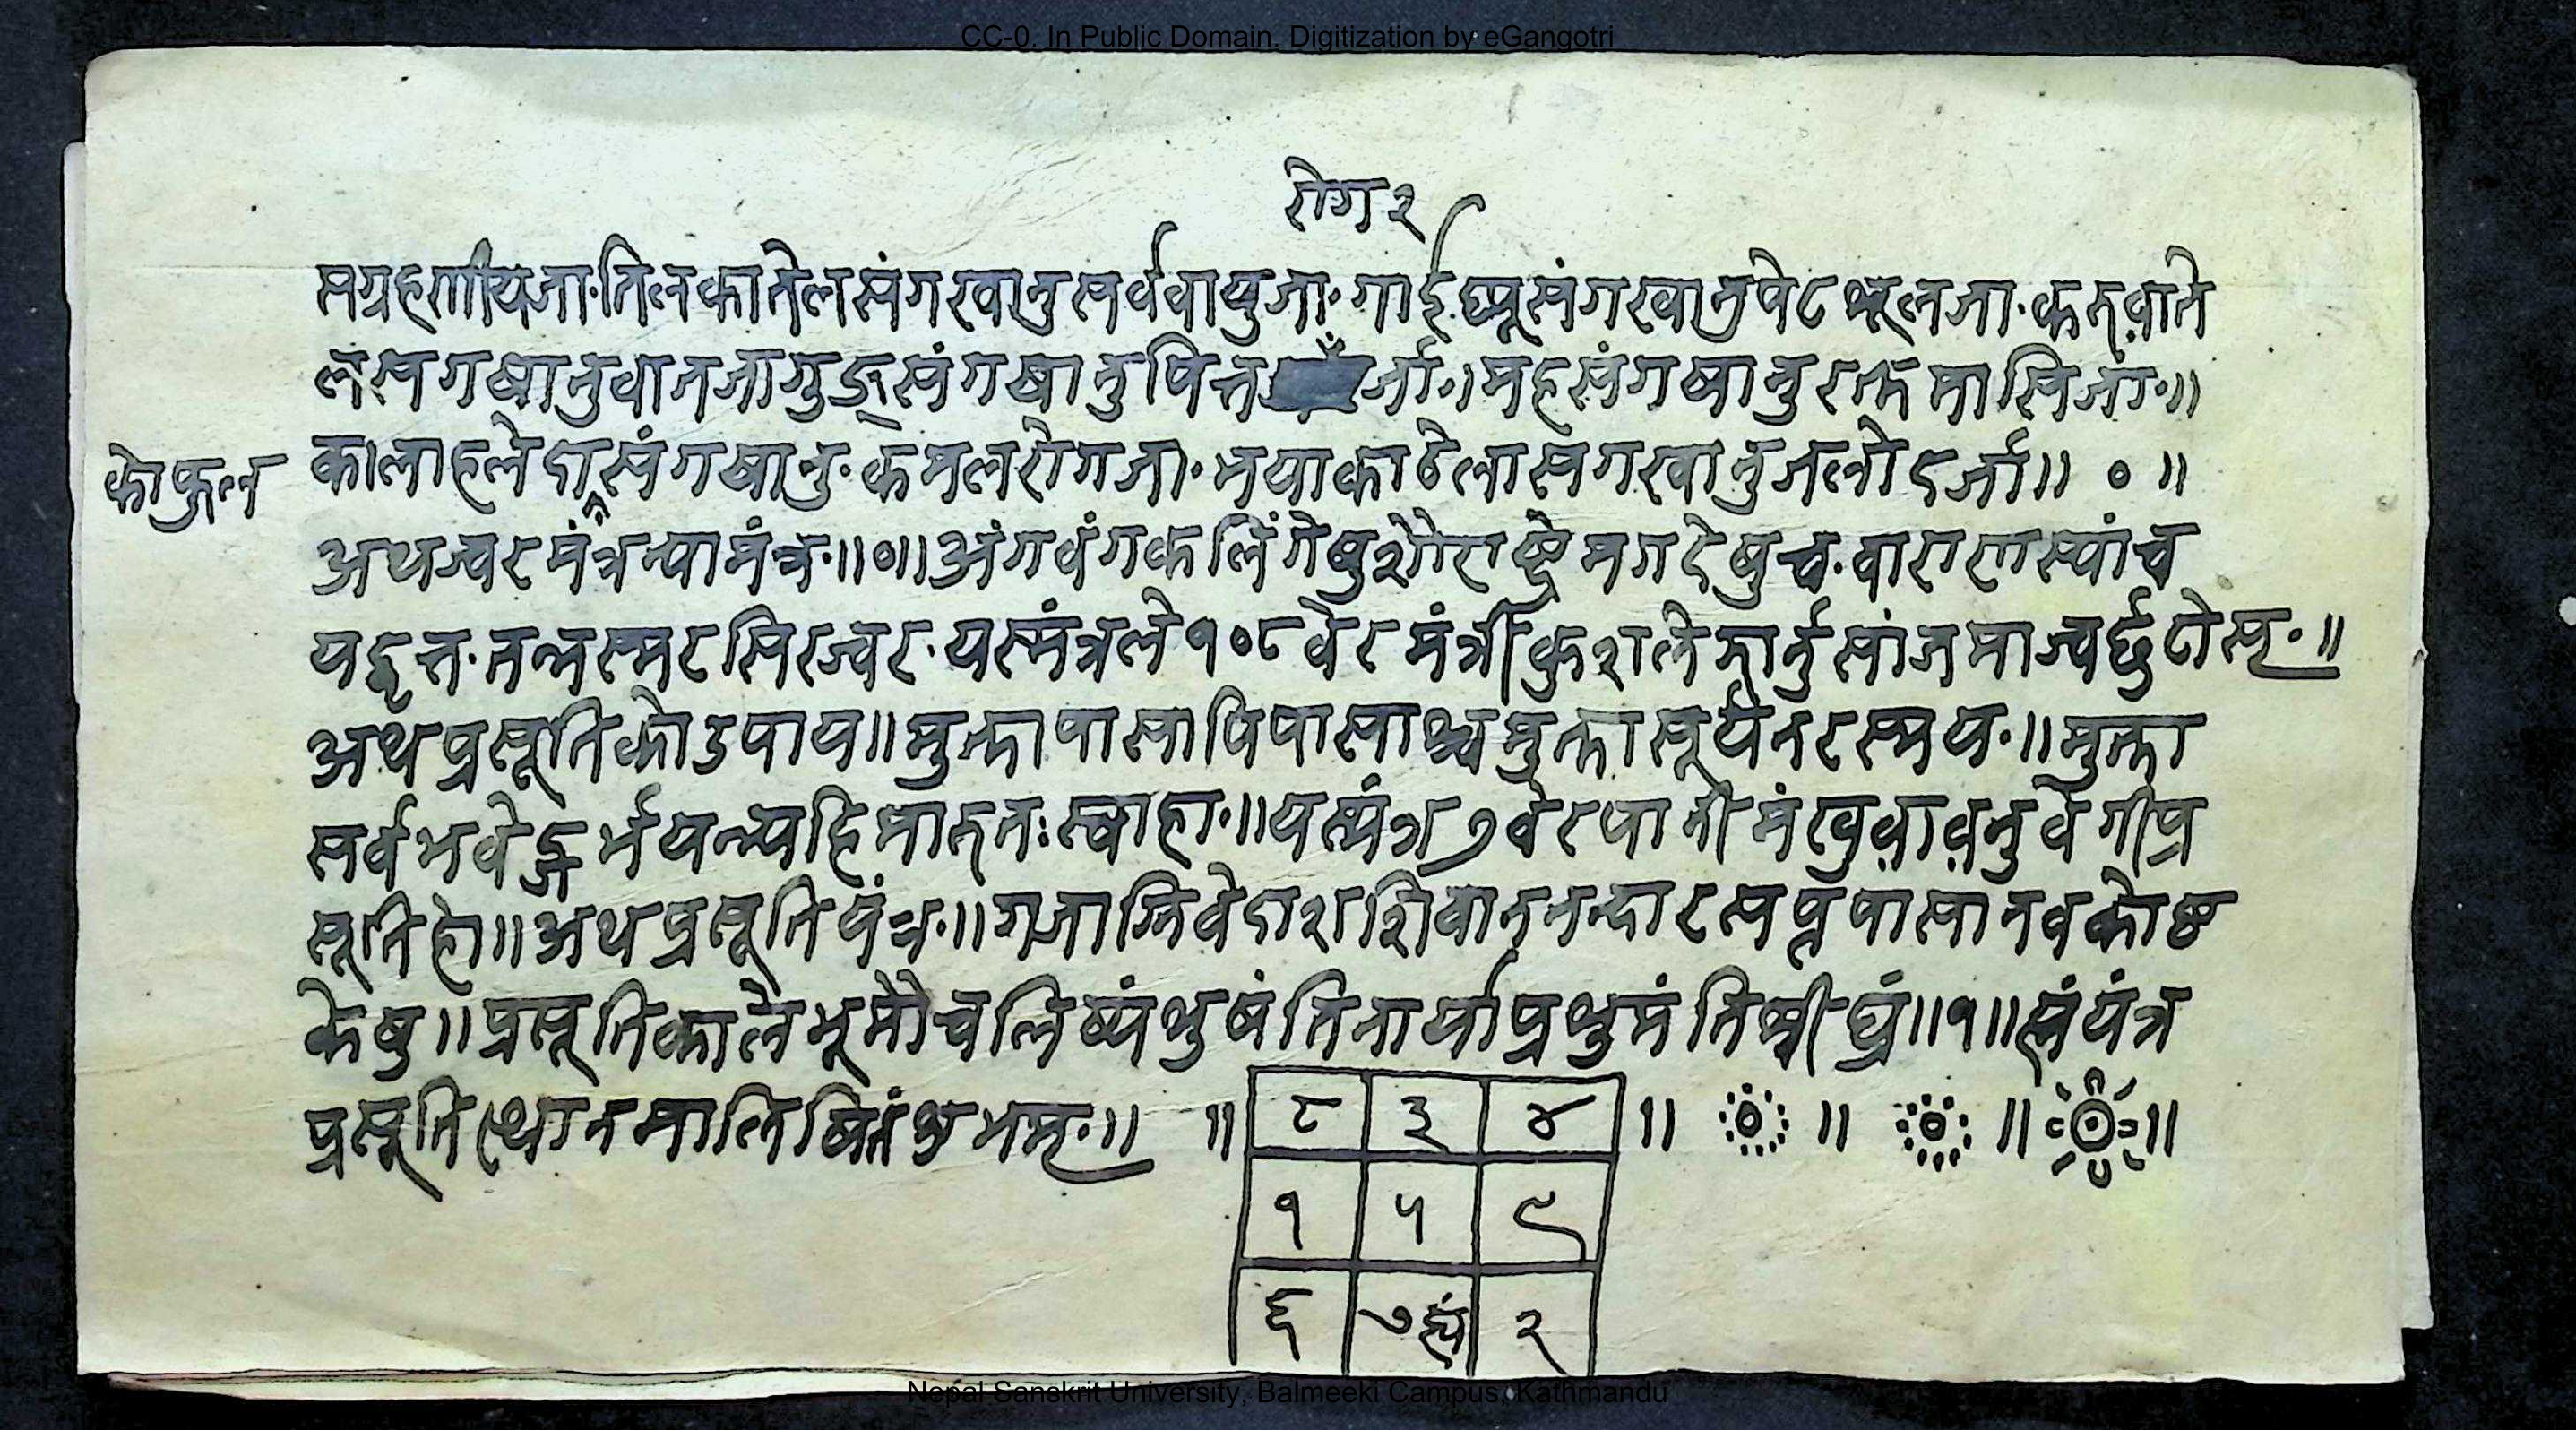 CC-0. In Public Domain. Digitization by eGangotri
रोग २
सग्रहणीयजा॰तिलकातेलसंगरवानुसर्ववायुजा॰गाईघ्यूसंगरवानुपेटशूलजा॰करुवाते
लसगषानुवातजागुड्संगषानुपित्त जाँ॰।महसंगषानुरक्तमासिजाँ॰॥
कालाहलेदासंगषानु॰कमलरोगजा॰भयाकाठेलासगरवानुजलोदर्जा॥ ० ॥
कोफूल
अथज्वरमंत्रन्यामंत्र॰॥०॥अंगवंगकलिंगेषुशौराष्ट्रेमगदेषुच॰वाराणस्यांच
यद्वृत्त॰तन्मस्मरसिरज्वर॰यस्मंत्रले१०८वेरमंत्रीकुशलेझार्नुसांजमाज्वर्छुटोस्पृ॰॥
अथप्रसूतिकोउपाय॥मुक्तापासाविपासाश्चमुक्तासूर्यनरस्मय॰॥मुक्ता
सर्वभवेद्गर्भयन्मयहिमारुतःस्वाहा॰॥यस्मंत्र७वेरपानीमंखुवावनुवेगीप्र
सूतिहो॥अथप्रसूतियंत्र॰॥गजाग्निवेदाशशिवाननन्दारसपक्षवासानवकोष्ठ
केषु॥प्रसूतिकालेभूमौचलिष्यंशुषंतिनार्याप्रशुमंतिश्वीघ्रं॥१॥स्मंयंत्र
प्रसूतिथानमालिषितंशुभम्॰॥ ॥ ८ ३ ४ ॥ ॥ ॥ ॥
१ ५ ९
६ ७ह्यं २
Nepal Sanskrit University, Balmeeki Campus, Kathmandu